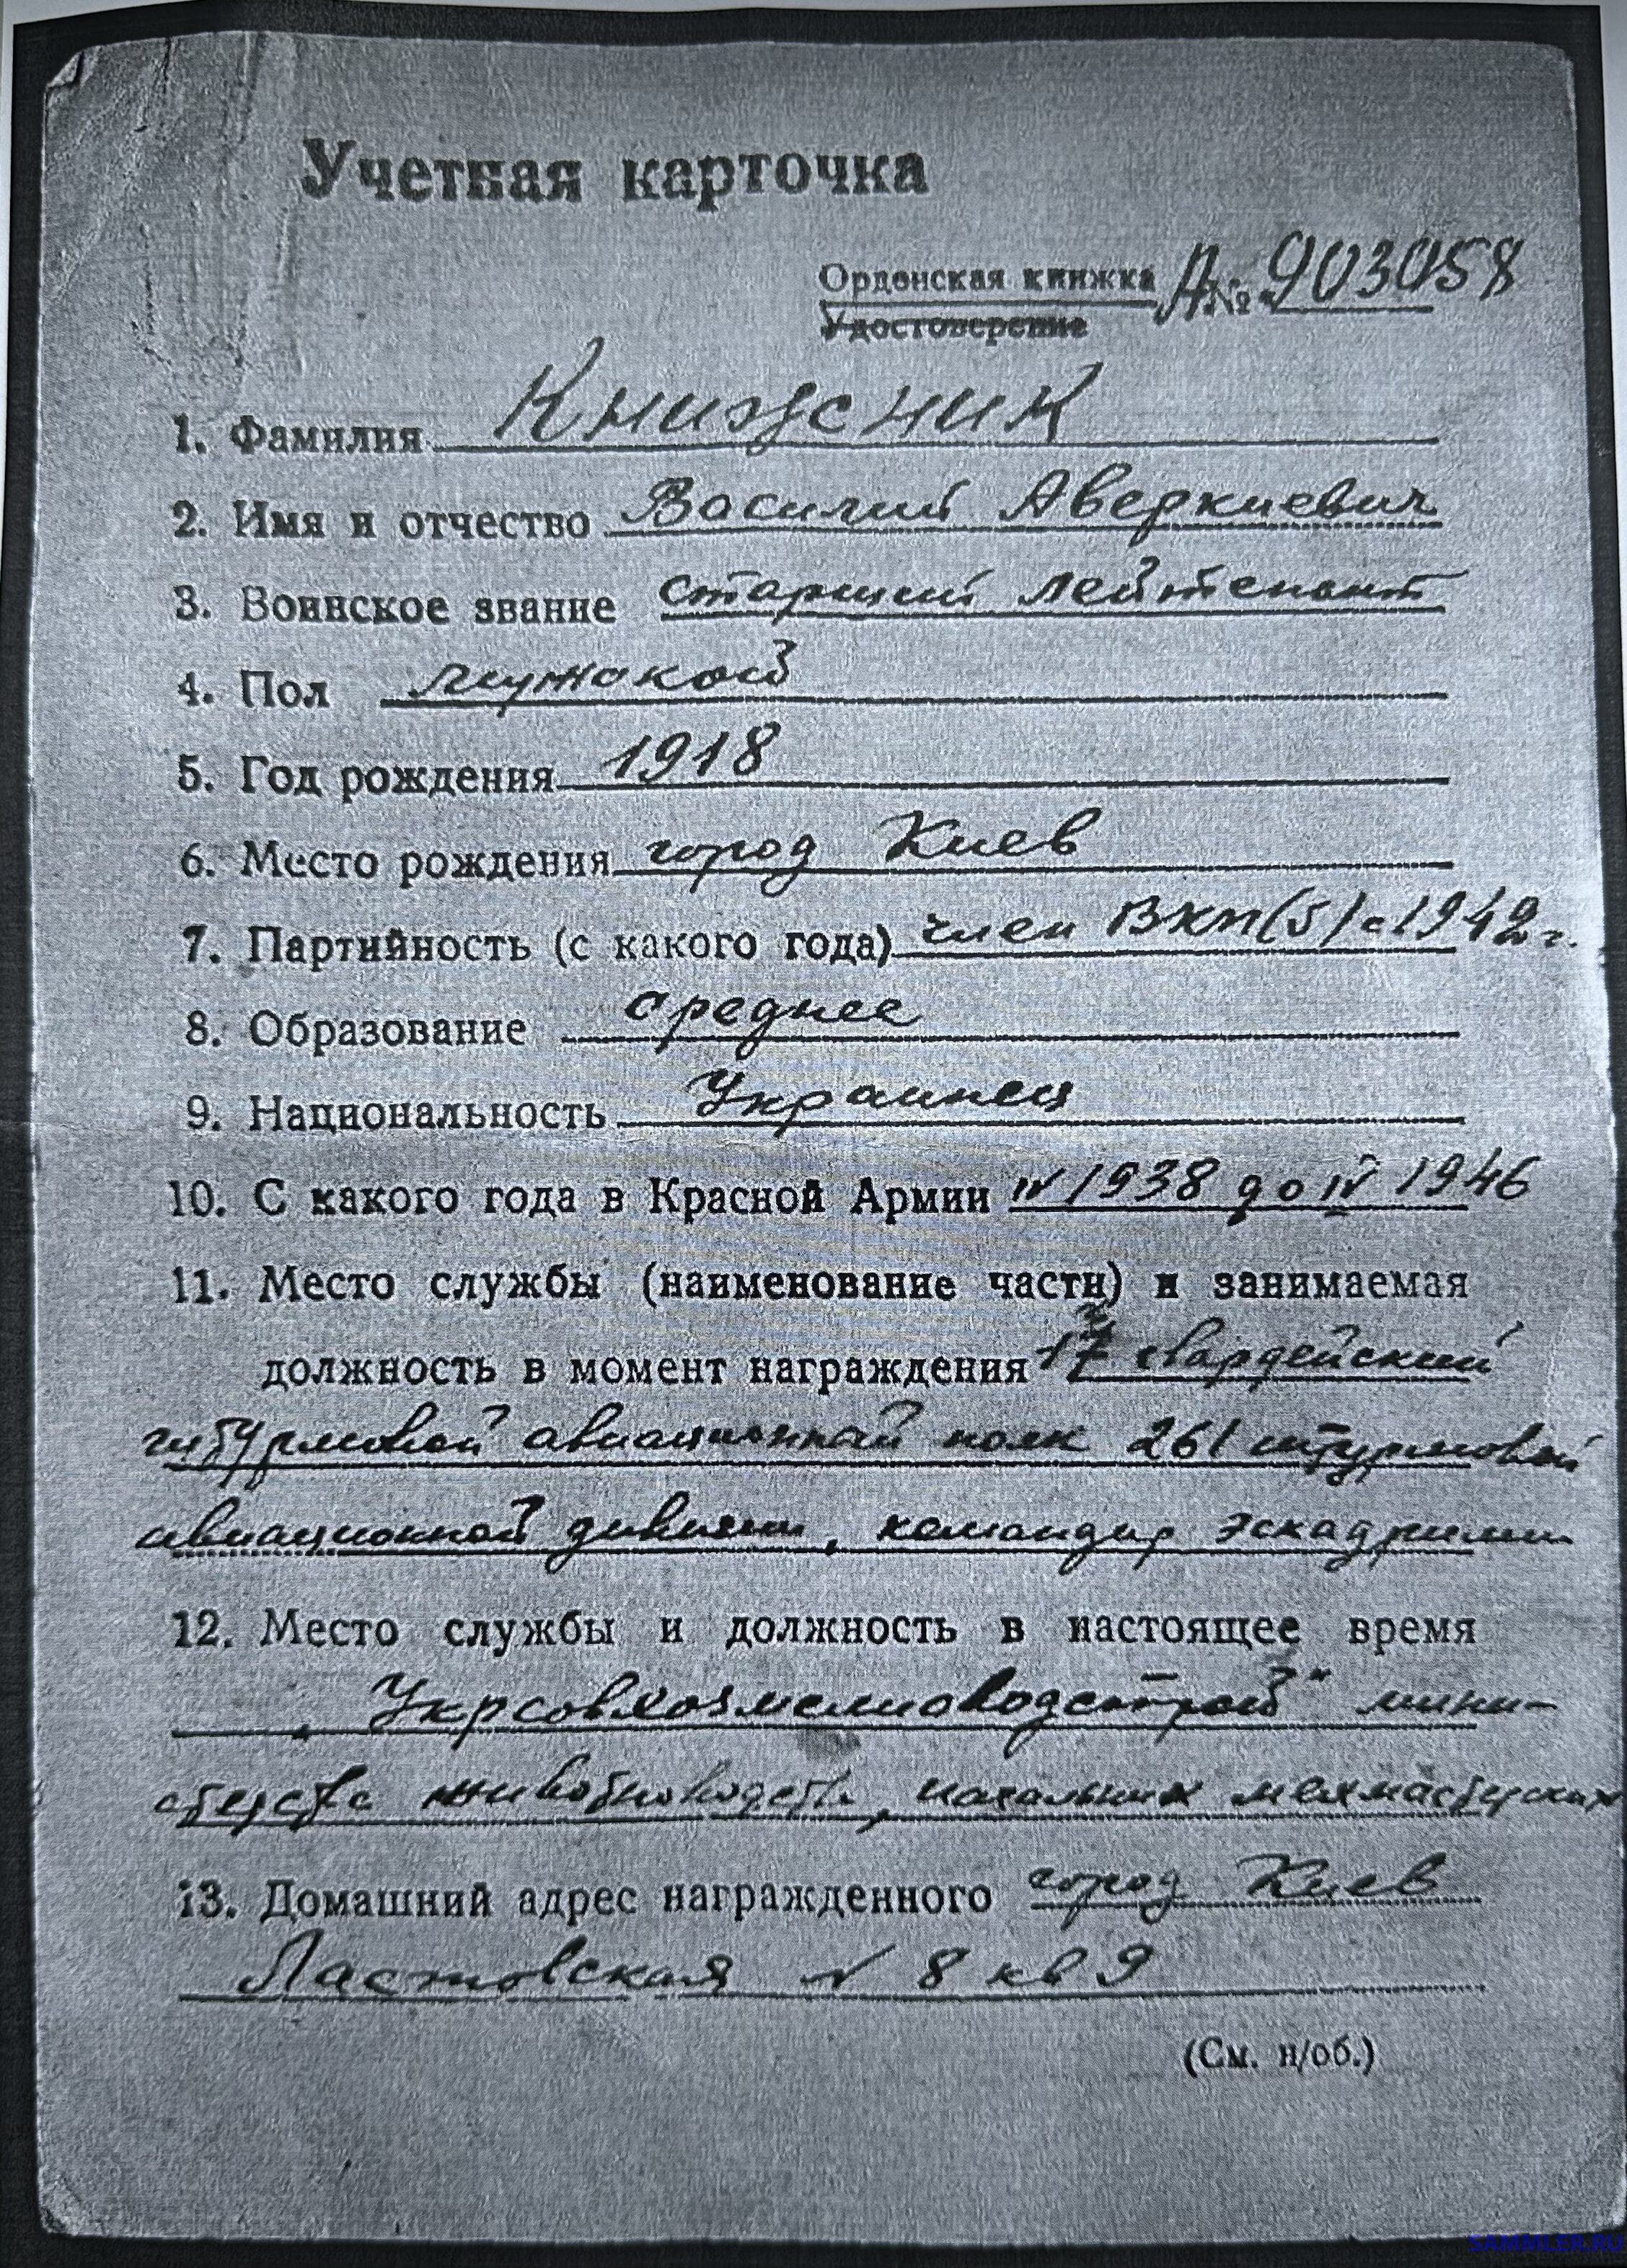 Учетная карточка
Орденская книжка А № 903058
Удостоверение
1. Фамилия Книжник
2. Имя и отчество Василий Аверкиевич
3. Воинское звание старший лейтенант
4. Пол мужской
5. Год рождения 1918
6. Место рождения город Киев
7. Партийность (с какого года) член ВКП(б) с 1942 г.
8. Образование среднее
9. Национальность Украинец
10. С какого года в Красной Армии IV 1938 до IV 1946
11. Место службы (наименование части) и занимаемая
должность в момент награждения гвардейский
штурмовой авиационный полк 261 штурмовой
авиационной дивизии, командир эскадрильи
12. Место службы и должность в настоящее время
„Укрсовхозмелиоводстрой" мини-
стерства животноводства, начальник мехмастерских
13. Домашний адрес награжденного город Киев
Ластовская № 8 кв 9
(См. н/об.)
SAMMLER.RU